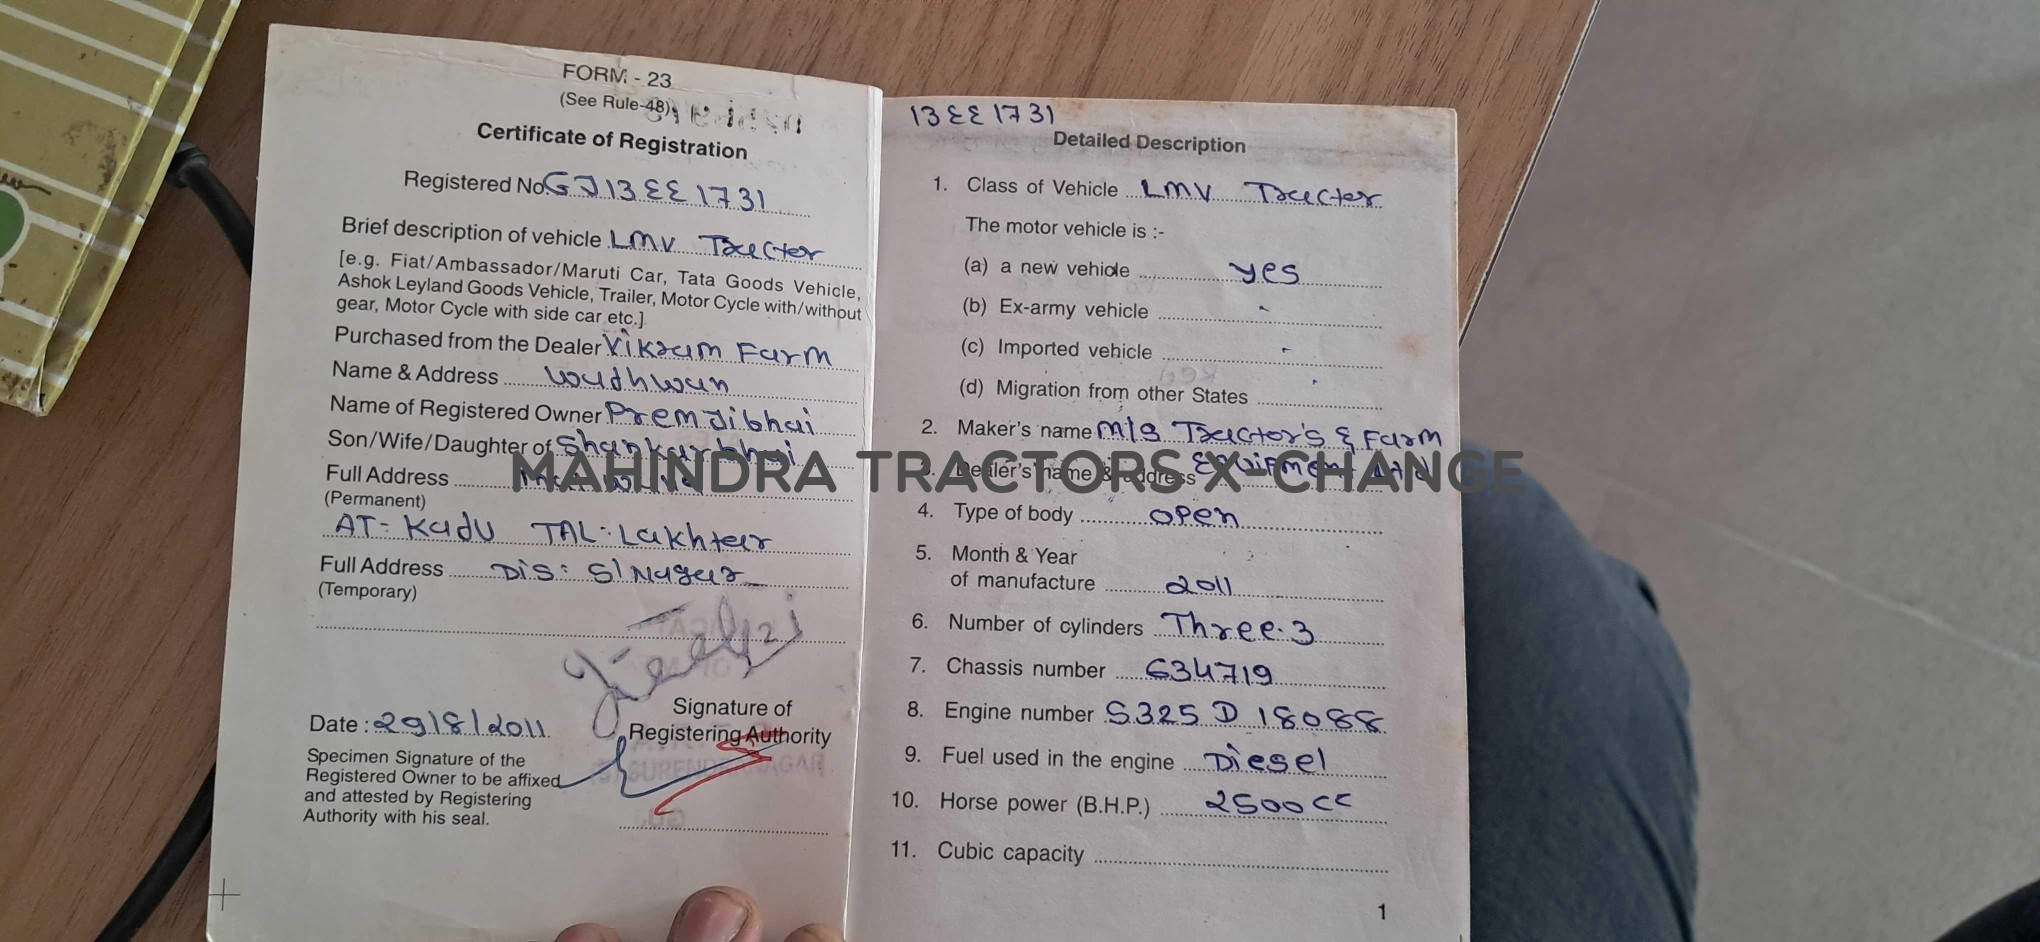 FORM - 23
(See Rule-48)
Certificate of Registration
Registered No. GJ13EE1731
Brief description of vehicle LMV Tractor
[e.g. Fiat/Ambassador/Maruti Car, Tata Goods Vehicle,
Ashok Leyland Goods Vehicle, Trailer, Motor Cycle with/without
gear, Motor Cycle with side car etc.]
Purchased from the Dealer Vikram Farm
Name & Address wadhwan
Name of Registered Owner Premjibhai
Son/Wife/Daughter of Shankarbhai
Full Address
(Permanent)
AT= Kadu TAL: Lakhtar
Full Address Dis: S/Nagar
(Temporary)
Signature of
Registering Authority
Date : 29/8/2011
Specimen Signature of the
Registered Owner to be affixed
and attested by Registering
Authority with his seal.
SURENDRANAGAR
13EE1731
Detailed Description
1. Class of Vehicle LMV Tractor
The motor vehicle is :-
(a) a new vehicle yes
(b) Ex-army vehicle -
(c) Imported vehicle -
(d) Migration from other States
2. Maker's name M/S Tractor's & Farm
3. Dealer's name & address Equipment Ltd
4. Type of body open
5. Month & Year
of manufacture 2011
6. Number of cylinders Three.3
7. Chassis number 634719
8. Engine number S325 D 18088
9. Fuel used in the engine Diesel
10. Horse power (B.H.P.) 2500cc
11. Cubic capacity
1
MAHINDRA TRACTORS X-CHANGE